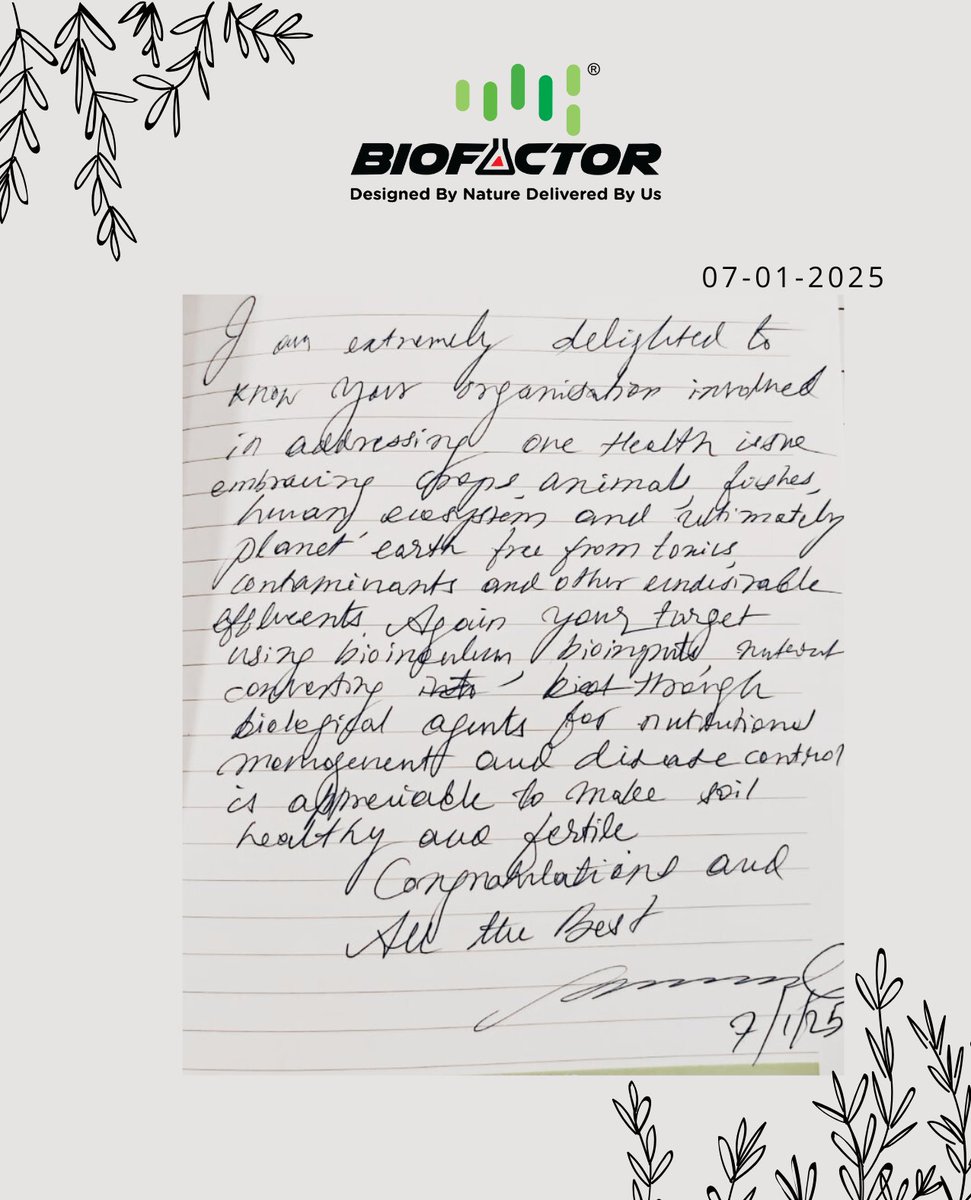 ®
BIOFACTOR
Designed By Nature Delivered By Us
07-01-2025
I am extremely delighted to
know your organisation involved
in addressing one Health issue
embracing crops, animals, fishes,
human, ecosystem and ultimately
planet earth free from toxics,
contaminants and other undisirable
effluents. Again your target
using bioinoculum, bioinputs, nutrient
converting through
biological agents for nutritional
management and disease control
is appreciable to make soil
healthy and fertile
Congratulations and
All the Best
7/1/25